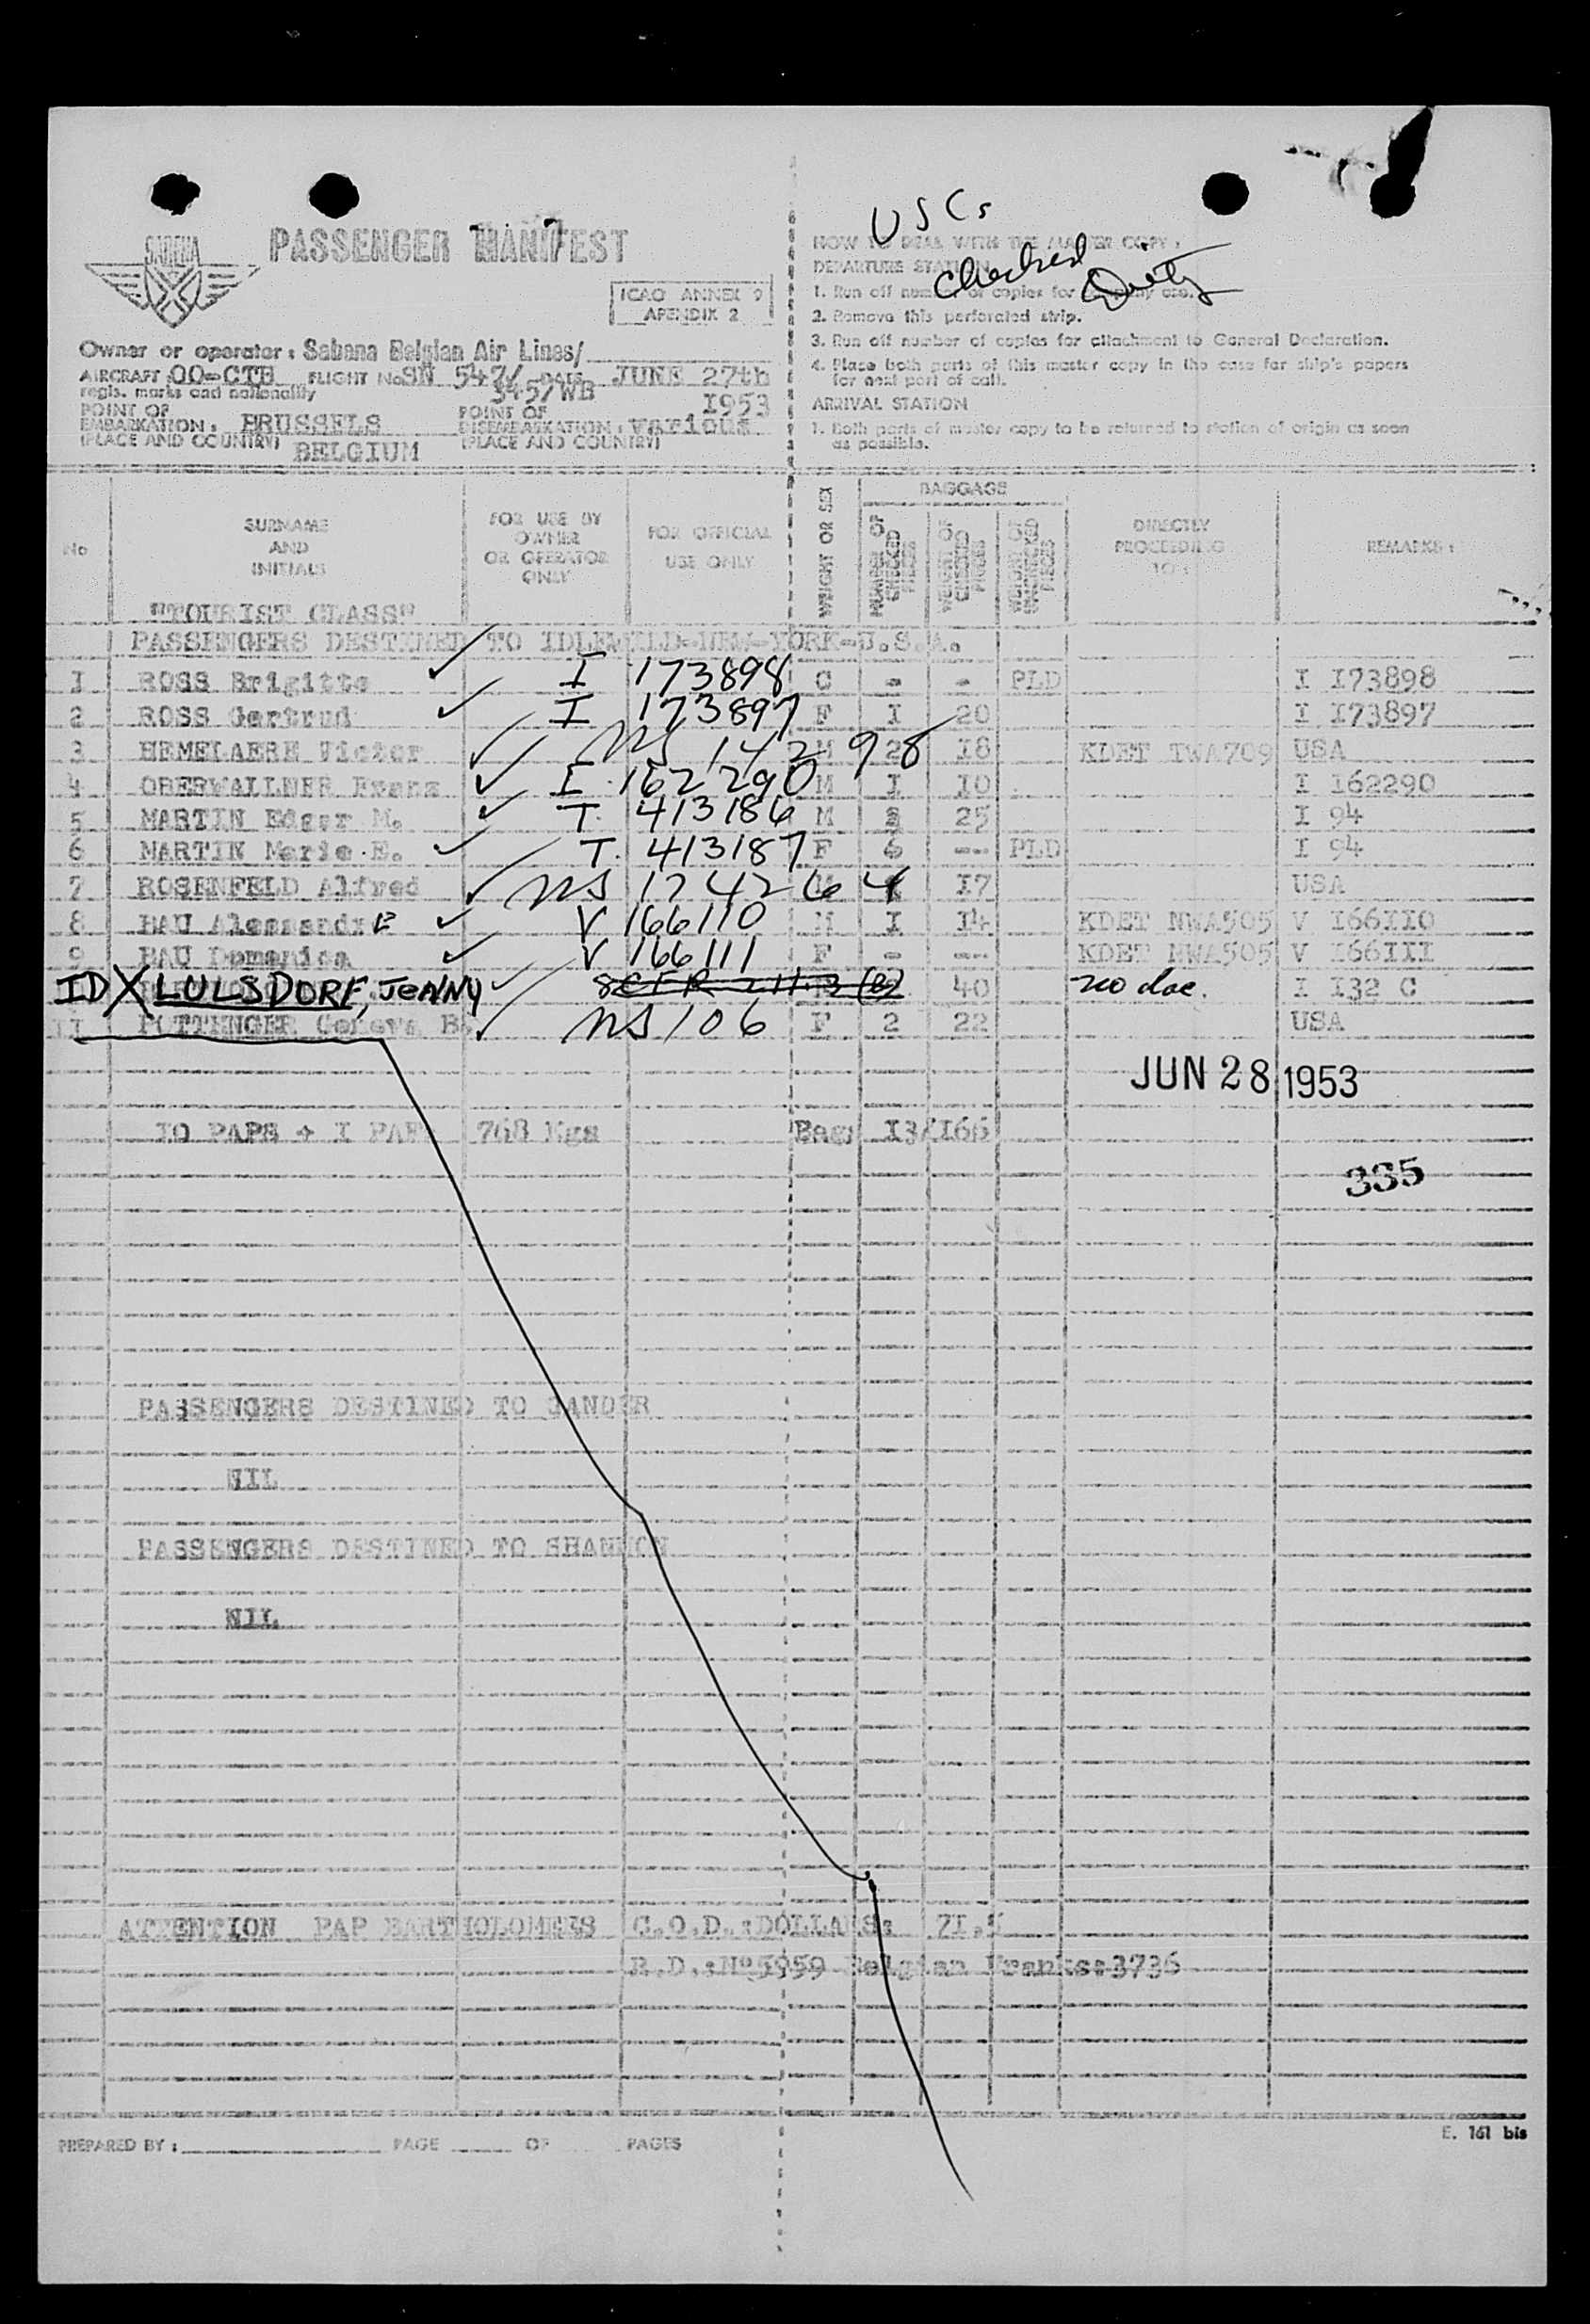 USCs
checked
SABENA
PASSENGER MANIFEST
ICAO ANNEX 9
APENDIX 2
HOW TO DEAL WITH THE MASTER COPY :
DEPARTURE STATION
1. Run off number of copies for company use.
2. Remove this perforated strip.
3. Run off number of copies for attachment to General Declaration.
4. Place both parts of this master copy in the case for ship's papers
for next port of call.
ARRIVAL STATION
1. Both parts of master copy to be returned to station of origin as soon
as possible.
Owner or operator : Sabena Belgian Air Lines/
AIRCRAFT : OO-CTB FLIGHT No SN 547/ DATE JUNE 27th
regis. marks and nationality 545/WB 1953
POINT OF EMBARKATION : BRUSSELS POINT OF DISEMBARKATION : various
(PLACE AND COUNTRY) BELGIUM (PLACE AND COUNTRY)
No SURNAME AND INITIALS FOR USE BY OWNER OR OPERATOR ONLY FOR OFFICIAL USE ONLY WEIGHT OR SEX BAGGAGE NUMBER OF CHECKED PIECES WEIGHT OF CHECKED PIECES WEIGHT OF UNCHECKED PIECES DIRECTLY PROCEEDING TO : REMARKS :
"TOURIST CLASS"
PASSENGERS DESTINED TO IDLEWILD-NEW-YORK-U.S.A.
I ROSS Brigitte I 173898 C - - PLD I I73898
2 ROSS Gertrud I 173897 F I 20 I I73897
3 HEMELAERE Victor NS 14298 M 2 I8 KDET TWA709 USA
4 OBERWALLNER Franz I 162290 M I I0 I I62290
5 MARTIN Edgar M. T. 413186 M 3 25 I 94
6 MARTIN Marie E. T. 413187 F -- PLD I 94
7 ROSENFELD Alfred NS 124264 M I7 USA
8 BAU AlessandrE V 166110 M I I4 KDET NWA505 V I66II0
9 BAU Domenica V 166111 F - -- KDET NWA505 V I66III
ID X LULSDORF, JENNY 8CFR 211.3 (B) 40 no doc. I I32 C
II POTTENGER Geneva B. NS 106 F 2 22 USA
JUN 28 1953
IO PAPS + I PAF 768 Kgs Bag: I3/I66
335
PASSENGERS DESTINED TO GANDER
NIL
PASSENGERS DESTINED TO SHANNON
NIL
ATTENTION PAP BARTHOLOMEUS C.O.D. :DOLLARS: 7I.5
R.D.:N°5959 Belgian Franks:3736
PREPARED BY : PAGE OF PAGES
E. 161 bis